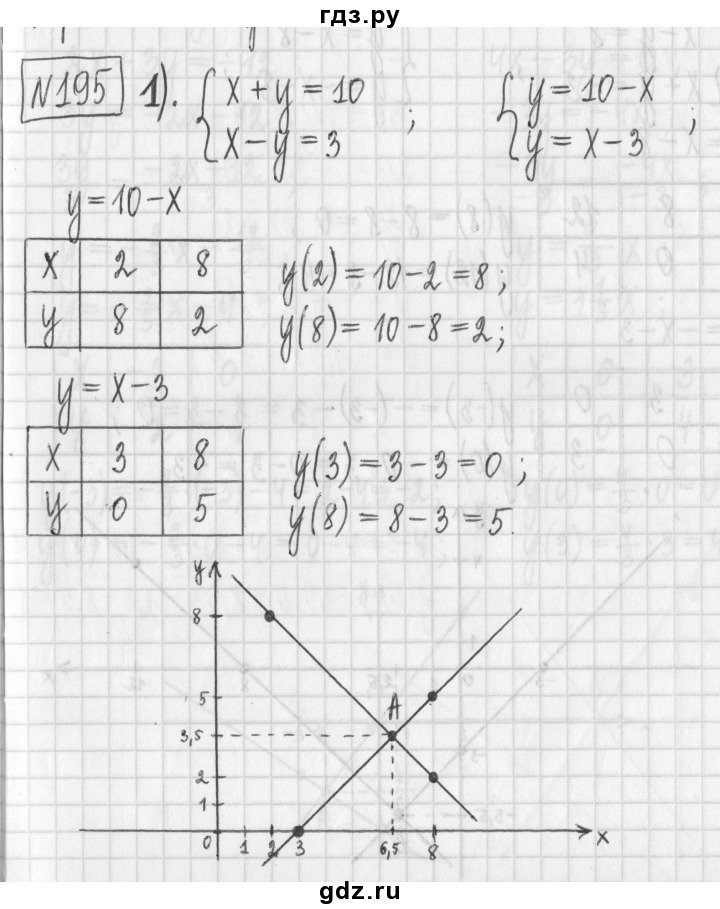 гдз.ру
№195 1). { x + y = 10 ; { y = 10 - x ;
x - y = 3 y = x - 3
y = 10 - x
x 2 8
y(2) = 10 - 2 = 8 ;
y 8 2
y(8) = 10 - 8 = 2 ;
y = x - 3
x 3 8
y(3) = 3 - 3 = 0 ;
y 0 5
y(8) = 8 - 3 = 5.
y
8
5
A
3,5
2
1
0 1 2 3 6,5 8 x
gdz.ru